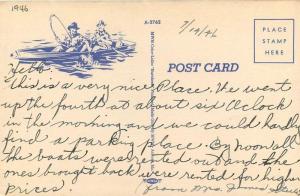 1946
A-2762
7/19/46
PLACE
STAMP
HERE
POST CARD
Hello.
This is a very nice Place. We went
up the fourth at about six O'clock
in the morning and we could hardly
find a parking place. By noon all
the boats were rented out and the
ones brought back were rented for higher
prices
from Mrs.